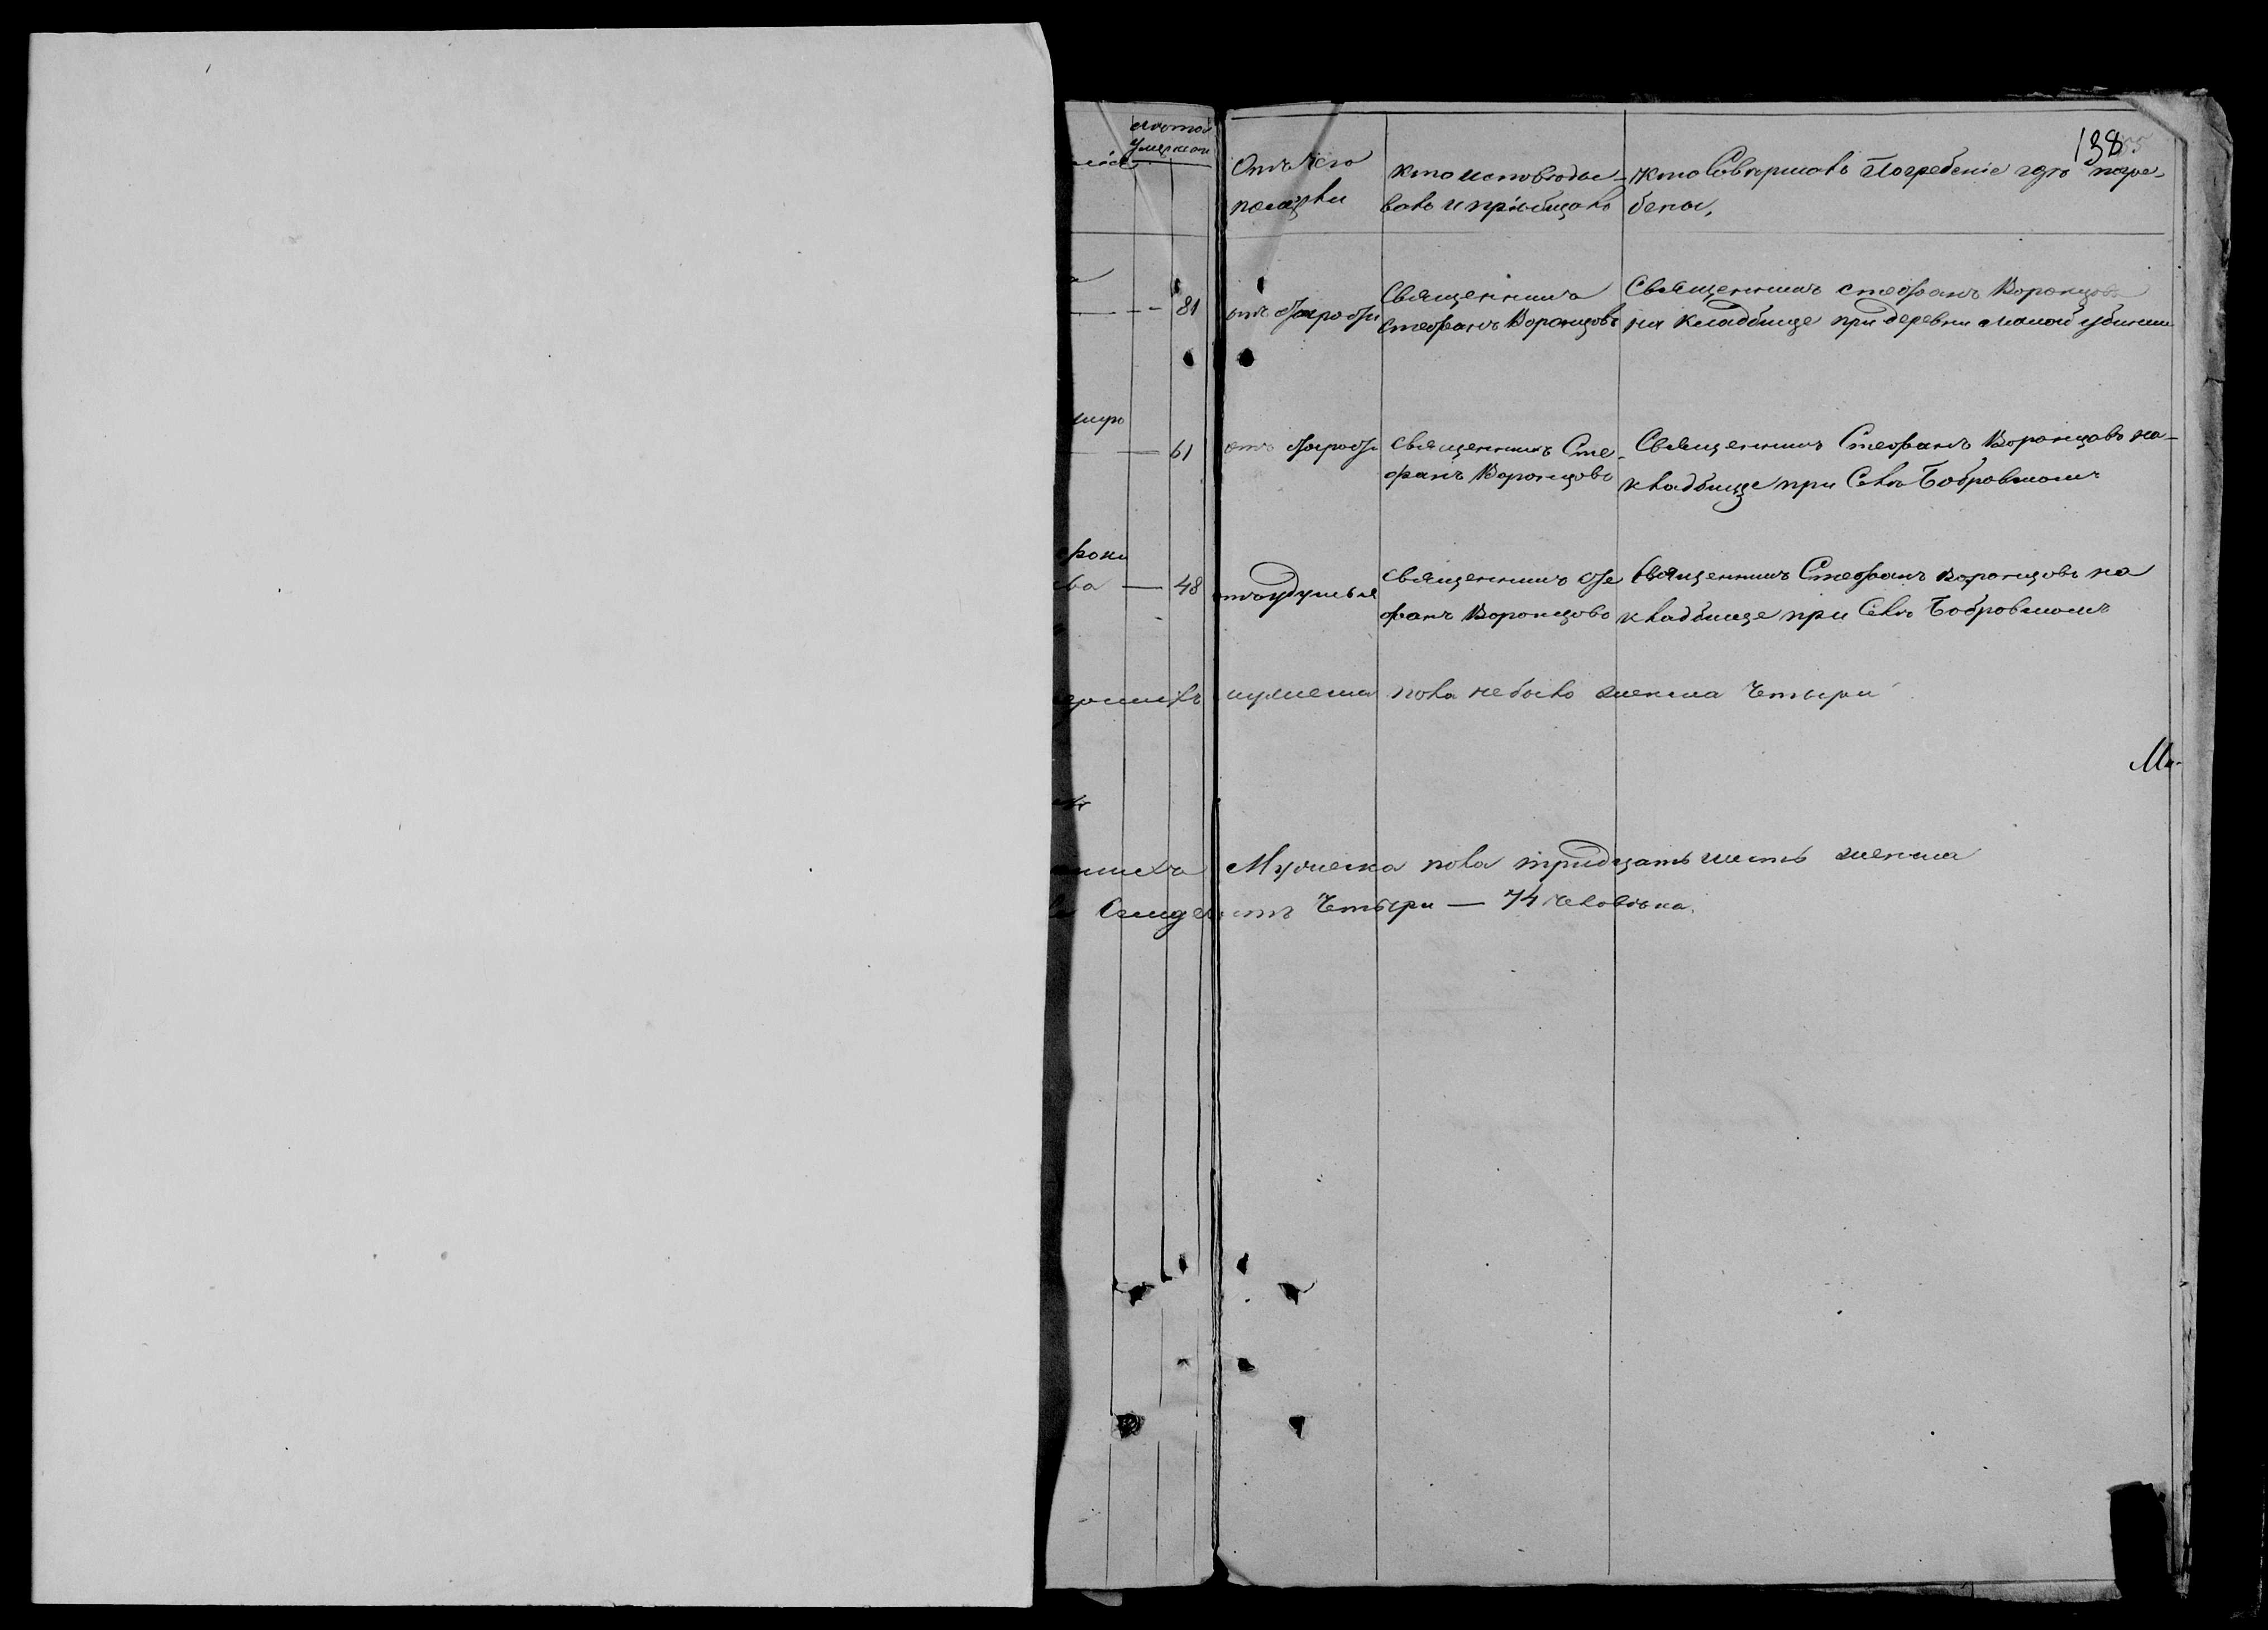 138
лѣта
умерших
Отъ чего
померли
кто исповѣды-
валъ и пріобщалъ
кто Совершалъ Погребеніе гдѣ погре-
бены.
81
Священникъ
Стефанъ Воронцовъ
Священникъ стефанъ Воронцовъ
на кладбище при деревни малой убинки
61
священникъ Сте-
фанъ Воронцовъ
Священникъ Стефанъ Воронцовъ на-
кладбище при Селѣ Бобровскомъ
48
отъ удушья
священникъ Сте
фанъ Воронцовъ
священникъ Стефанъ Воронцовъ на
кладбище при Селѣ Бобровскомъ
мужеска пола небыло женска Четыри
Мужеска пола тридцать шесть женска
Семдесятъ Четыри — 74 человѣка.